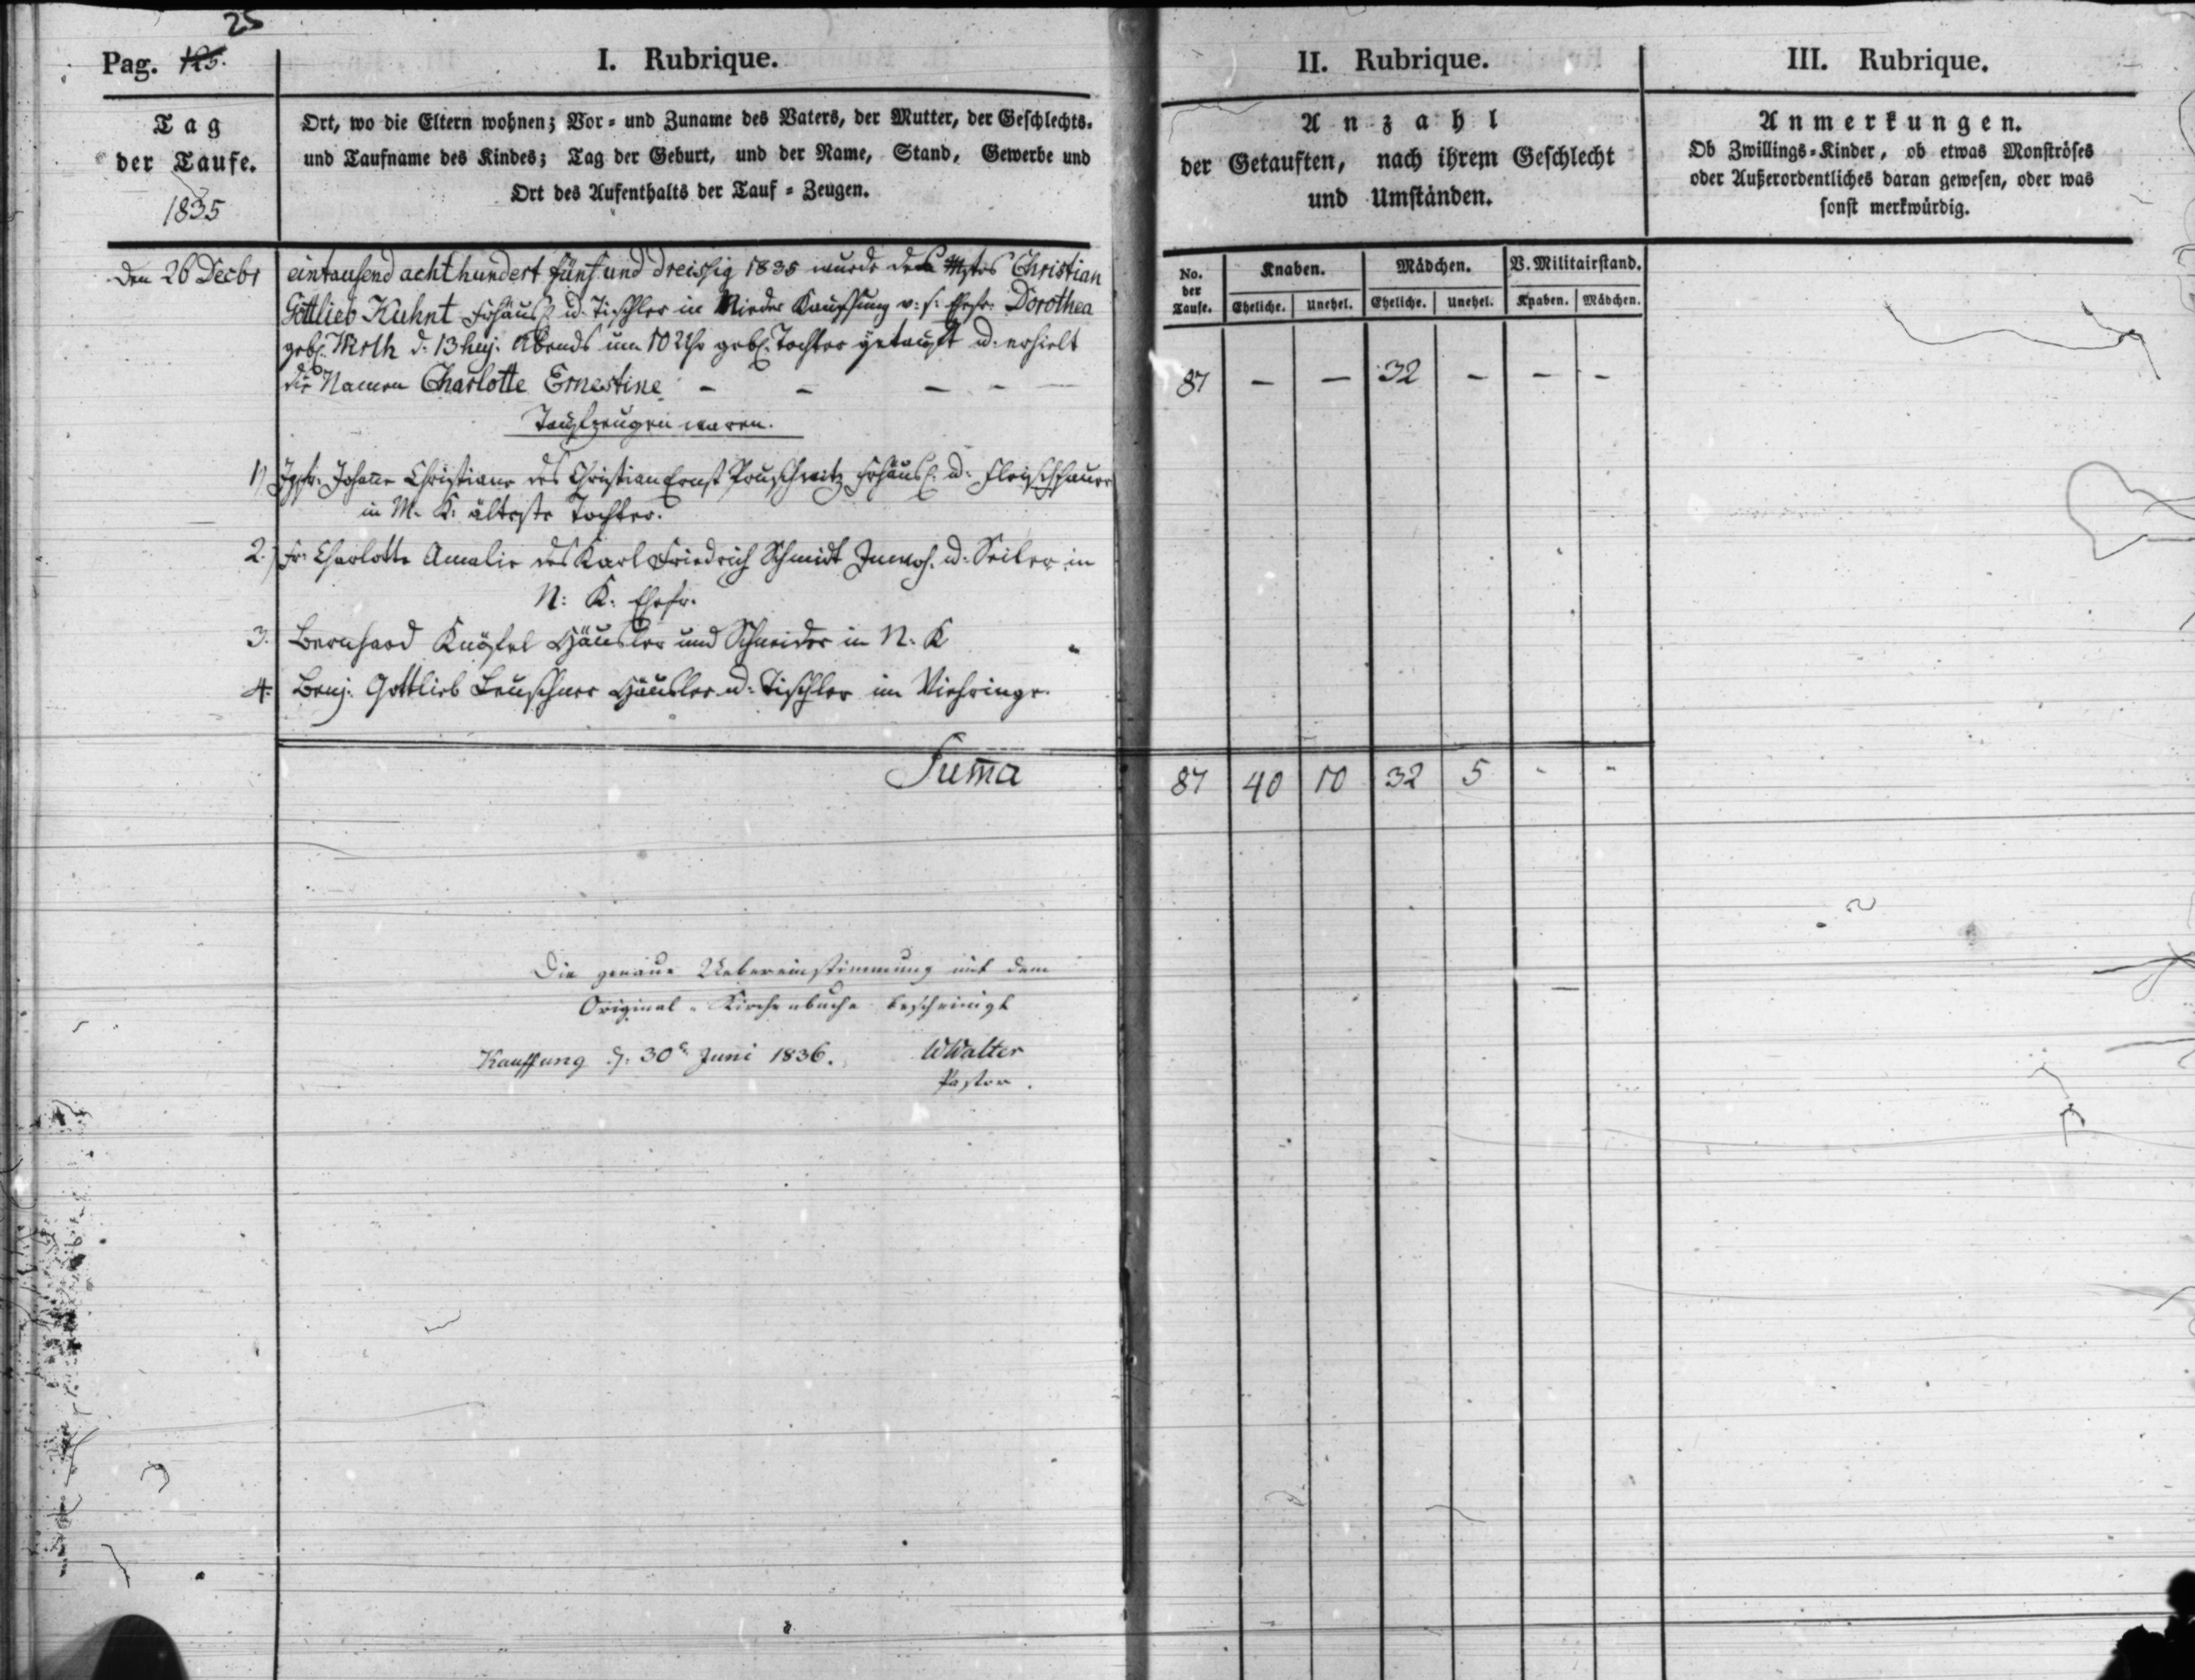 25
Pag. 125.
I. Rubrique.
II. Rubrique.
III. Rubrique.
Tag
der Taufe.
1835
Ort, wo die Eltern wohnen; Vor- und Zuname des Vaters, der Mutter, der Geschlechts-
und Taufname des Kindes; Tag der Geburt, und der Name, Stand, Gewerbe und
Ort des Aufenthalts der Tauf-Zeugen.
Anzahl
der Getauften, nach ihrem Geschlecht
und Umständen.
Anmerkungen.
Ob Zwillings-Kinder, ob etwas Monströses
oder Außerordentliches daran gewesen, oder was
sonst merkwürdig.
No. der Taufe.
Knaben.
Mädchen.
V. Militairstand.
Eheliche. Unehel. Eheliche. Unehel. Knaben. Mädchen.
Den 26 Decbr eintausend achthundert fünf und dreissig 1835 wurde des Mstrs Christian
Gottlieb Kuhnt Frhäusl. u. Tischler in Nieder Kauffung v. s. Ehefr. Dorothea
geb. Wirth d. 13 huj. Abends um 10 Uhr geb. Tochter getauft u. erhielt
die Namen Charlotte Ernestine - - - - -
87 - - 32 - - -
Taufzeugen waren.
1) Jgfr. Johanne Christiane des Christian Ernst Pouschwitz Frhäusl. u. Fleischhauer
in M. K. älteste Tochter.
2.) Fr. Charlotte Amalie des Karl Friedrich Schmidt Inwoh. u. Seiler in
N. K. Ehefr.
3. Bernhard Knöfel Häusler und Schneider in N. K
4. Benj. Gottlieb Leuschner Häusler u. Tischler im Viehringe.
Sum̄a 87 40 10 32 5 - -
Die genaue Uebereinstimmung mit dem
Original-Kirchenbuche bescheinigt
Kauffung d. 30t Juni 1836. WWalter
Pastor.